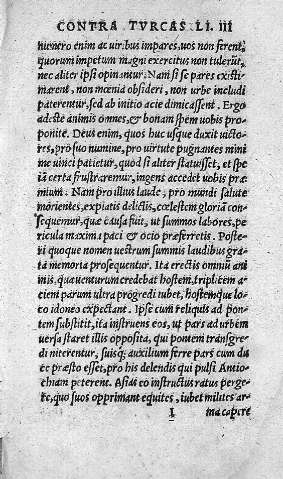 CONTRA TVRCAS LI. III
numero enim ac uiribus impares, uos non ferent,
quorum impetum magni exercitus non tulerūt,
nec aliter ipsi opinantur. Nam si se pares existi
marent, non mœnia obsideri, non urbe includi
paterentur, sed ab initio acie dimicassent. Ergo
adeste animis omnes, & bonam spem uobis pro
ponite. Deus enim, quos huc usque duxit uicto/
res, pro suo numine, pro uirtute pugnantes mini
me uinci patietur, quod si aliter statuisset, et spe
iā certa frustraremur, ingens accedet uobis præ
mium. Nam pro illius laude, pro mundi salute
morientes, expiatis delictis, cœlestem gloriā con
sequemur, quæ causa fuit, ut summos labores, pe
ricula maxima paci & ocio præferretis. Poste/
ri quoque nomen uestrum summis laudibus gra/
ta memoria prosequentur. Ita erectis omniū ani
mis, qua uenturum credebat hostem, triplicem a/
ciem parum ultra progredi iubet, hostemque lo
co idoneo expectant. Ipse cum reliquis ad pon
tem substitit, ita instruens eos, ut pars ad urbem
uersa staret illis opposita, qui pontem transgre/
di niterentur, suisque auxilium ferre pars cum du
ce præsto esset, pro his delendis qui pulsi Antio/
chiam peterent. Asias eo instructus ratus perge/
re, quo suos opprimant equites, iubet milites ar
I ma capere